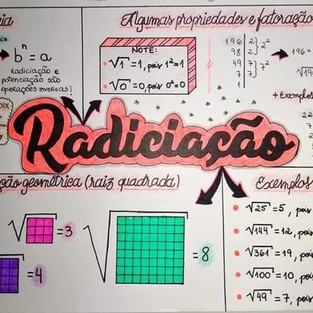 Algumas propriedades e fatoração
bⁿ = a
radiciação e
potenciação são
operações inversas!
NOTE:
√1 = 1, pois 1² = 1
√0 = 0, pois 0² = 0
196 2
98 2
49 7
7 7
2²
7²
196 =
+ Exemplos
Radiciação
geométrica (raiz quadrada)
= 3
= 4
= 8
Exemplos
√25 = 5, pois
√144 = 12, pois
√361 = 19, pois
√100 = 10, pois
√49 = 7, pois